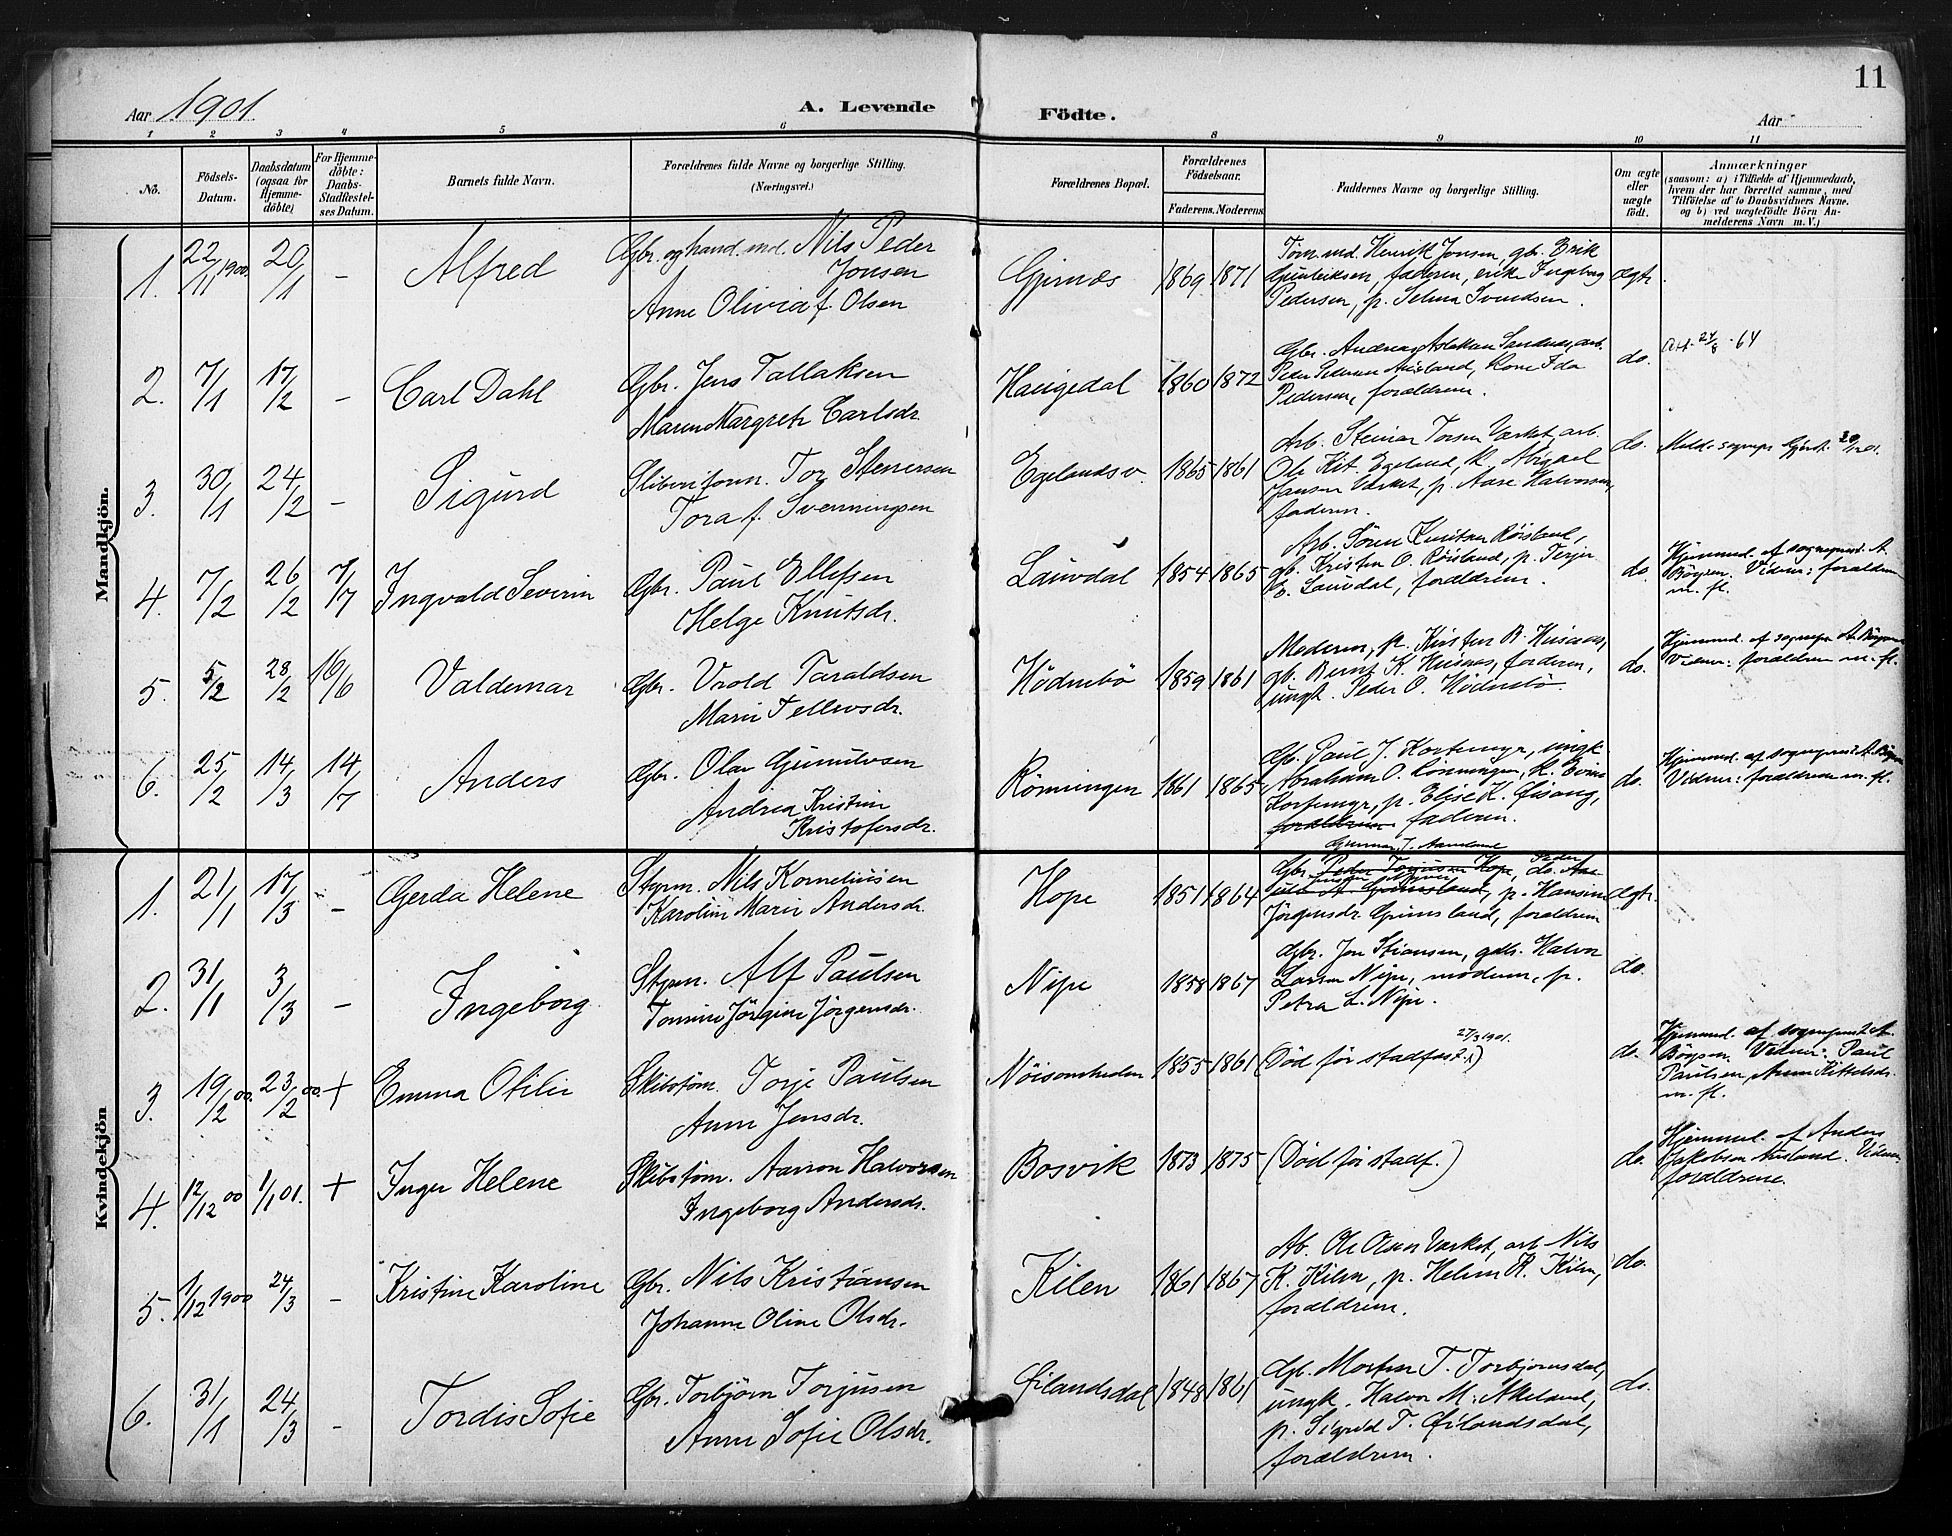 11
Aar 1901
A. Levende
Födte.
Aar
1 2 3 4 5 6 8 9 10 11
No.
Födsels-
Datum.
Daabsdatum
(ogsaa for
Hjemme-
døbte)
For Hjemme-
døbte:
Daabs-
Stadfæstel-
ses Datum.
Barnets fulde Navn.
Forældrenes fulde Navne og borgerlige Stilling.
(Næringsvei.)
Forældrenes Bopæl.
Forældrenes
Fødselsaar.
Faderens. Moderens.
Faddernes Navne og borgerlige Stilling.
Om ægte
eller
uægte
født.
Anmærkninger
(saasom: a) i Tilfælde af Hjemmedaab,
hvem der har forrettet samme, med
Tilföielse af to Daabsvidners Navne.
og b) ved uægtefødte Börn An-
melderens Navn m. V.)
Mandkjön.
1. 22/11 1900. 20/1 – Alfred
Gbr. og hand. md. Nils Peder
Jonsen
Anne Olivia f. Olsen
Gjernæs 1869 1871
Tøm. md. Henrik Jonsen, gb. Erik
faderen, enke Ingeborg
Pedersen, p. Selma Svendsen.
ægte.
2. 7/1 17/2 – Carl Dahl
Gbr. Jens Tallaksen
Maren Margrete Carlsdr.
Haugedal 1860 1872
Gbr. Andreas Aslaksen arb.
Peder Pedersen Ausland, kone Ida
Pedersen, forældrene.
do.
Att 24/8 - 64
3. 30/1 24/2 – Sigurd
Sliberiform. Tor Stenersen
Tora f. Svenningsen
Egelandsv. 1865 1861
Arb. Steinar Torsen Værket, arb.
Ole Kit. Egeland, k. Abigael
Jensen Værket, p. Aase Halvorsen,
faderen.
do.
Meld. sognepr. Gjerst. 20/1 201.
4. 7/2 26/2 7/7 Ingvald Severin
Gbr. Paul Ellefsen
Helge Knutsdr.
Lauvdal 1854 1865
Arb. Sören Knutsen Røisland,
gb. Kristen O. Røisland, p. Terjer
Lauvdal, forældrene.
do.
Hjemmed. af sognepræst A.
Böysen. Vidner: forældrene
m. fl.
5. 5/2 28/2 16/6 Valdemar
Gbr. Vrold Taraldsen
Marie Tellevsdr.
Hödnebö 1859 1861
Moderen, p. Kirsten B. Husaas,
gb. Bernt K. Husaas, faderen,
ungk. Peder O. Hödnebö.
do.
Hjemmed. af sognepr. A. Böysen
Vidner: forældrene m. fl.
6. 25/2 14/3 14/7 Anders
Gbr. Olav Gunulvsen
Andrea Kristine
Kristofersdr.
Rönningen 1861 1865
Gb. Paul J. Kortemyr, ungk.
Abraham O. Rönningen, k. Evine
Kortemyr, p. Elise K. Øisang,
forældrene faderen.
do.
Hjemmed. af sognepræst A. Böysen
Vidner: forældrene m. fl.
Kvindekjön
1. 21/1 17/3 – Gerda Helene
Styrm. Nils Korneliusen
Karoline Marie Andersdr.
Hope 1851 1864
Gunnar J. Aaneland
Gbr. Peder Torjusen Hope, do.
Grimsland, p. Hansine
Jörgensdr. Grimsland, forældrene
ægte.
2. 31/1 3/3 – Ingeborg
Styrm. Alf Paulsen
Tomine Jörgine Jörgensdr.
Nipe 1858 1867
Gbr. Jon Stiansen, gdb. Halvor
Larsen Nipe, moderen, p.
Petra L. Nipe.
do.
3. 19/2 00. 23/2 00. + Emma Otilie
Skibstöm. Torje Paulsen
Anne Jensdr.
Nöisomheden 1855 1861
27/3 1901.
(Död för stadfæst.)
do.
Hjemmed. af sognepræst A.
Böysen. Vidner: Paul
Paulsen, Anne Kittelsdr.
m. fl.
4. 12/12 00 1/1 01. + Inger Helene
Skibstöm. Aanon Halvorsen
Ingeborg Andersdr.
Bosvik 1873 1875
(Död för stadf.)
do.
Hjemmed. af Anders
Jakobsen Ausland. Vidner:
forældrene.
5. 1/12 1900 24/3 – Kristine Karoline
Gbr. Nils Kristiansen
Johanne Oline Olsdr.
Kilen 1861 1867
Ab. Ole Olsen Værket, arb. Nils
K. Kilen, p. Heline K. Kilen,
forældrene.
do.
6. 31/1 24/3 – Tordis Sofie
Gbr. Torbjörn Torjusen
Anne Sofie Olsdr.
Øilandsdal 1848 1861
Gb. Morten T. Torbjornsdal,
ungk. Halvor M. Akeland,
p. Sigrid T. Øilandsdal,
forældrene.
do.